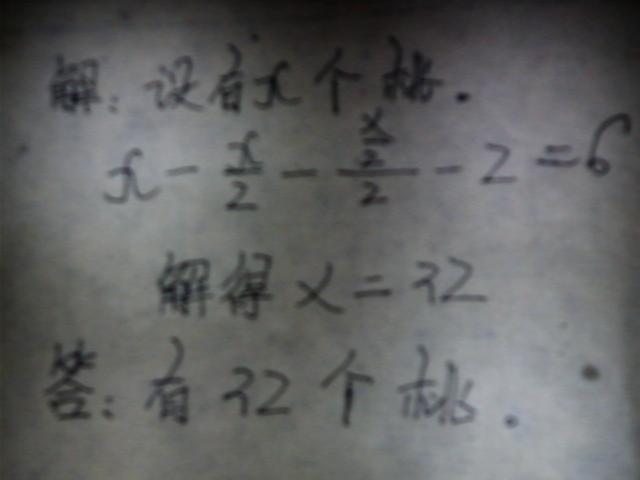 解：设有x个桃.
x - x/2 - (x/2)/2 - 2 = 6
解得 x = 32
答：有 32 个 桃.